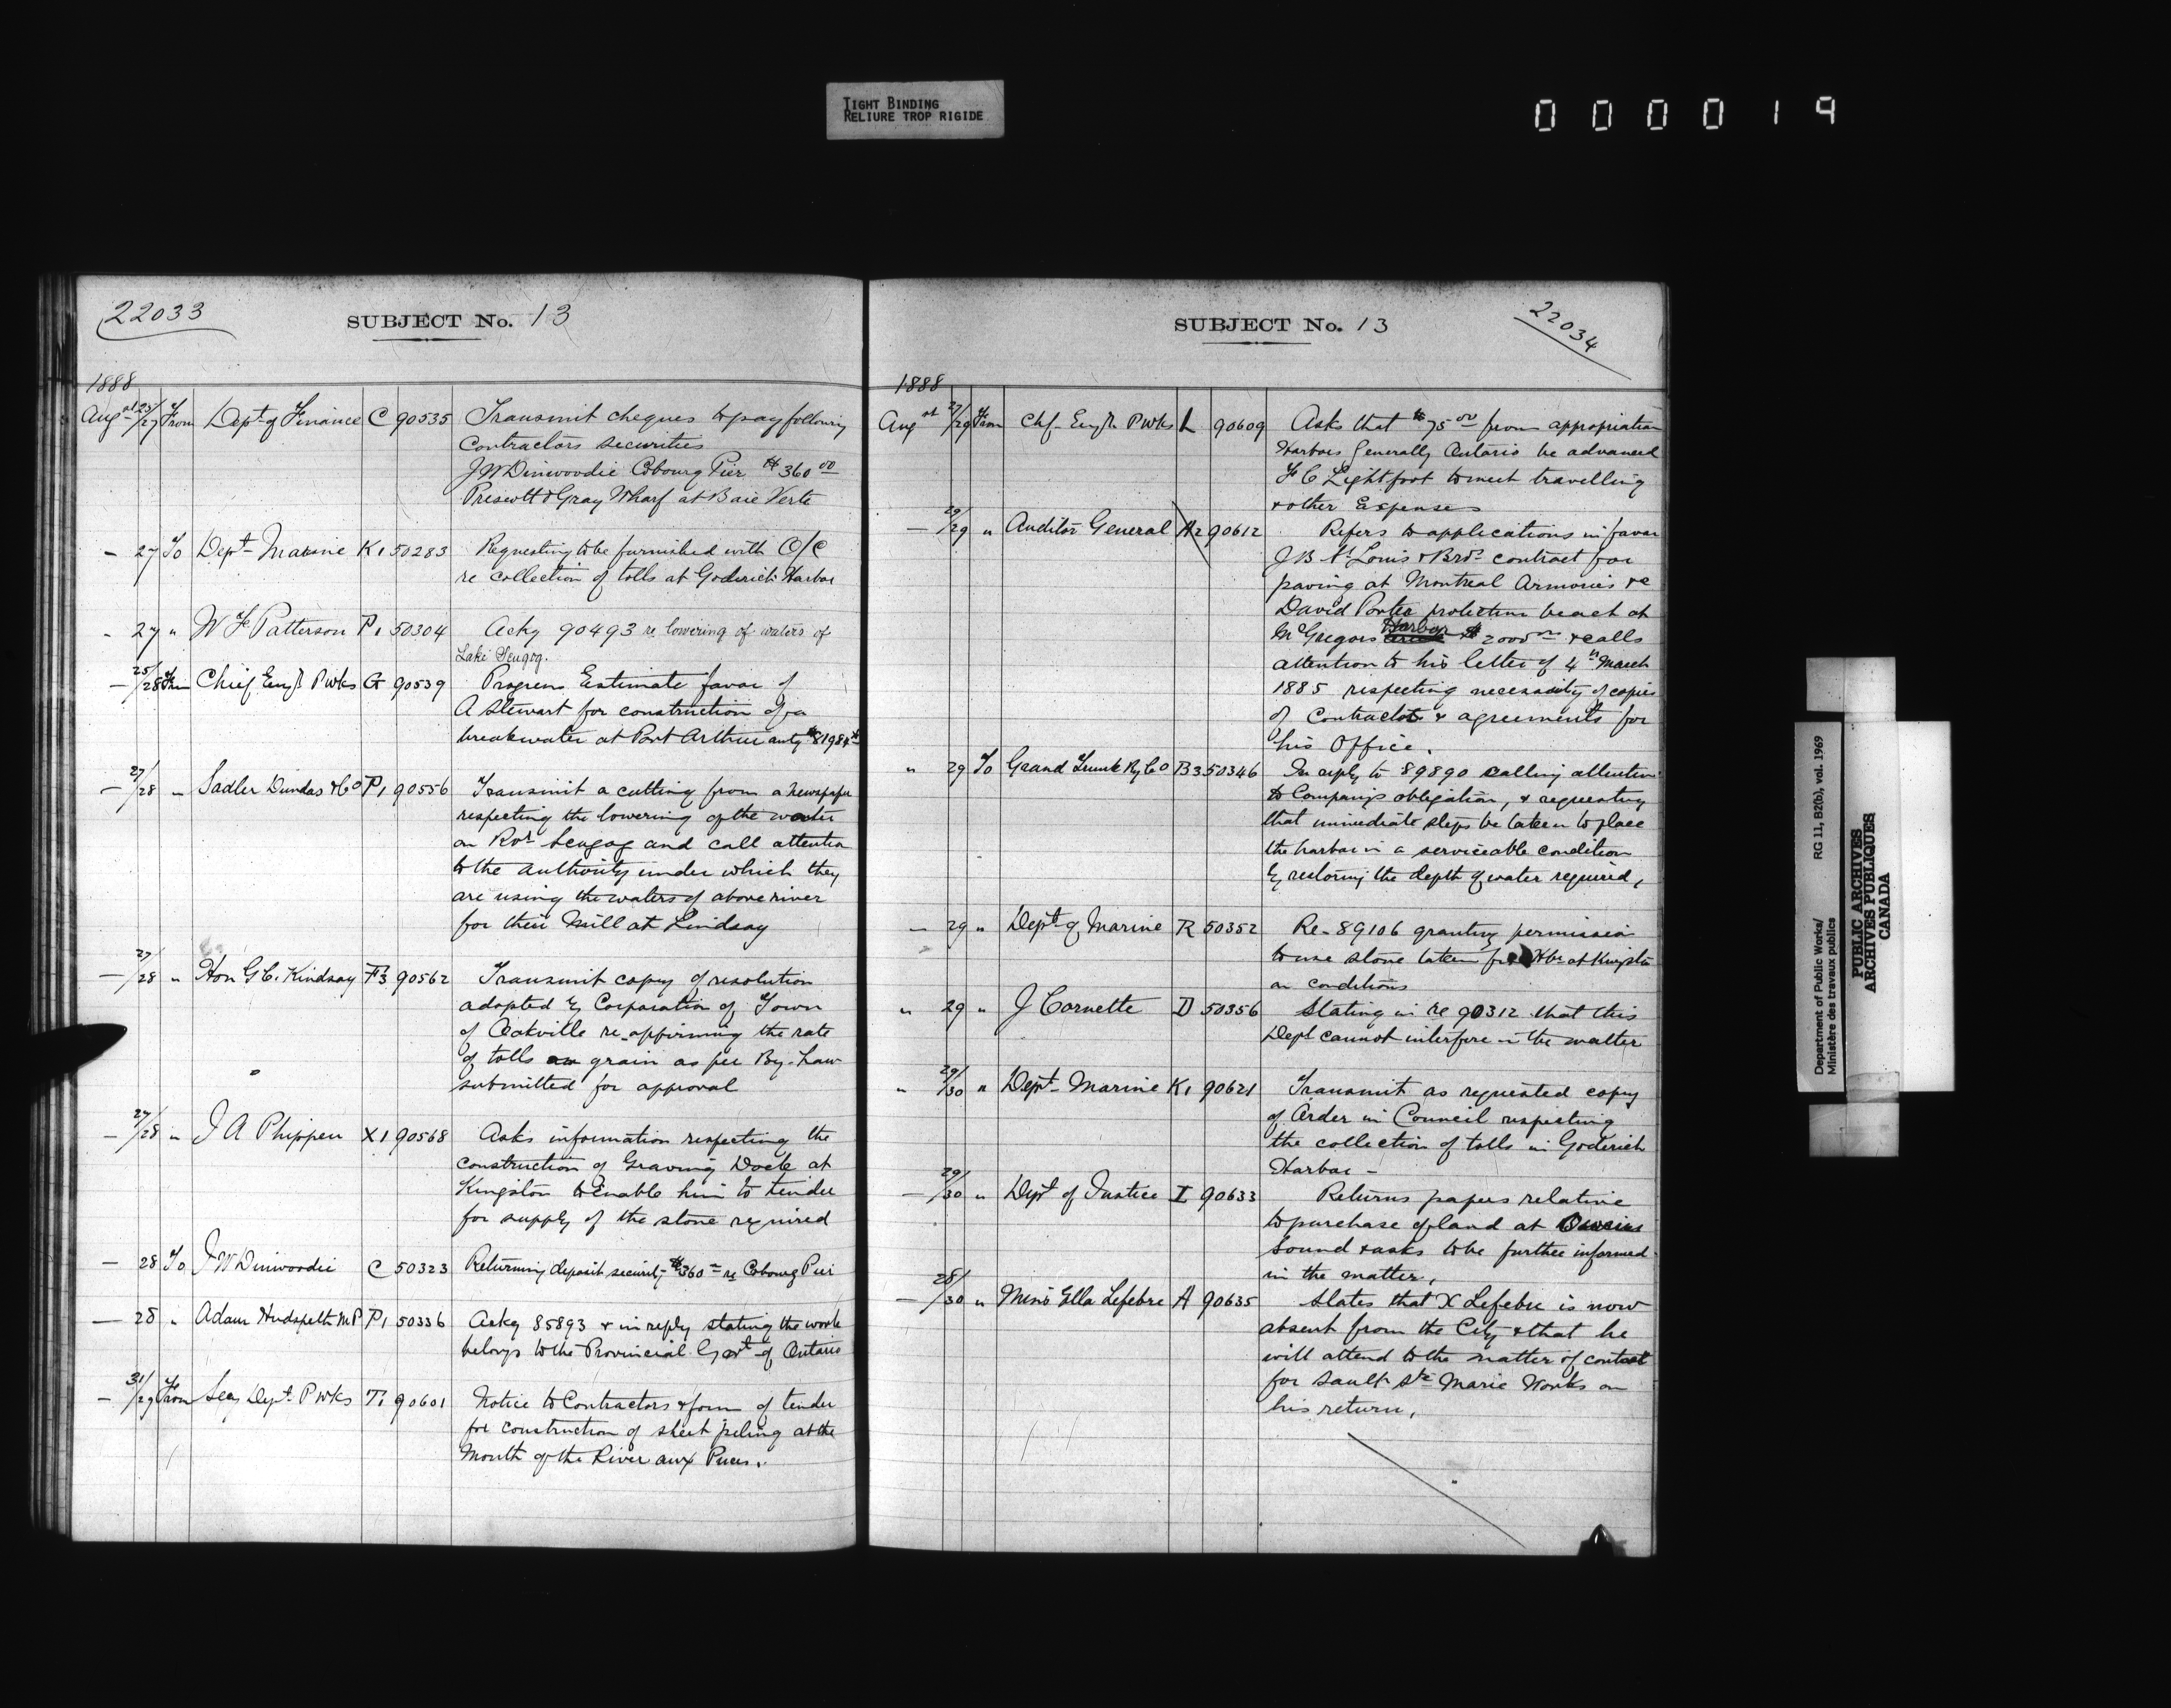 TIGHT BINDING
RELIURE TROP RIGIDE
000019
22033
SUBJECT No. 13
1888
Augst 25/27 From Dept of Finance C 90535 Transmit cheques to pay following
Contractors securities
J W Dinwoodie Cobourg Pier $360 00
Prescott & Gray Wharf at Baie Verte
- 27 To Dept Marine K1 50283 Requesting to be furnished with O/C
re collection of tolls at Goderich Harbor
- 27 " W F Patterson P1 50304 Ackg 90493 re lowering of waters of
Lake Scugog.
- 25/28 From Chief Engr P Wks G 90539 Progress Estimate favor of
A Stewart for construction of a
breakwater at Port Arthur
- 27/28 " Sadler Dundas & Co P1 90556 Transmit a cutting from a newspaper
respecting the lowering of the water
on Rvr Scugog and call attention
to the authority under which they
are using the waters of above river
for their Mill at Lindsay
- 27/28 " Hon G C. Kindsay F3 90562 Transmit copy of resolution
adopted by Corporation of Town
of Oakville re-affirming the rate
of tolls on grain as per By-Law
submitted for approval
- 27/28 " J A Phippen X1 90568 Asks information respecting the
construction of Graving Dock at
Kingston to Enable him to tender
for supply of the stone required
- 28 To J W Dinwoodie C 50323 Returning deposit security $360 re Cobourg Pier
- 28 " Adam Hudspeth M P P1 50336 Ackg 85893 & in reply stating the work
belongs to the Provincial Govt of Ontario
- 31/29 From Secy Dept P Wks T1 90601 Notice to Contractors & form of tender
for construction of sheet piling at the
Mouth of the River aux Puces.
22034
SUBJECT No. 13
1888
Augst 27/29 From Chf Engr P Wks L 90609 Asks that $75 00 from appropriation
Harbors Generally Ontario be advanced
F C Lightfoot to meet travelling
& other Expenses
- 29/29 " Auditor General A2 90612 Refers to applications in favor
J B St Louis & Bros contract for
paving at Montreal Armories & c
David Porter protection beach at
McGregors Harbor $2000 & calls
attention to his letter of 4th March
1885 respecting necessity of copies
of Contracts & agreements for
his Office.
" 29 To Grand Trunk Ry Co B3 50346 In reply to 89890 calling attention
to Company's obligation, & requesting
that immediate steps be taken to place
the harbor in a serviceable condition
by restoring the depth of water required,
- 29 " Dept of Marine R 50352 Re-89106 granting permission
to use stone taken from Hbr at Kingston
on conditions
" 29 " J Cornette D 50356 Stating in re 90312 that this
Dept cannot interfere in the matter
" 29/30 " Dept Marine K1 90621 Transmit as requested copy
of Order in Council respecting
the collection of tolls in Goderich
Harbor -
- 29/30 " Dept of Justice I 90633 Returns papers relative
to purchase of land at
Sound & asks to be further informed
in the matter,
- 28/30 " Ella Lefebre A 90635 States that X Lefebre is now
absent from the City & that he
will attend to the matter of contract
for Sault Ste Marie Works on
his return,
Department of Public Works/ RG 11, B2(b), vol. 1969
Ministère des travaux publics
PUBLIC ARCHIVES
ARCHIVES PUBLIQUES
CANADA